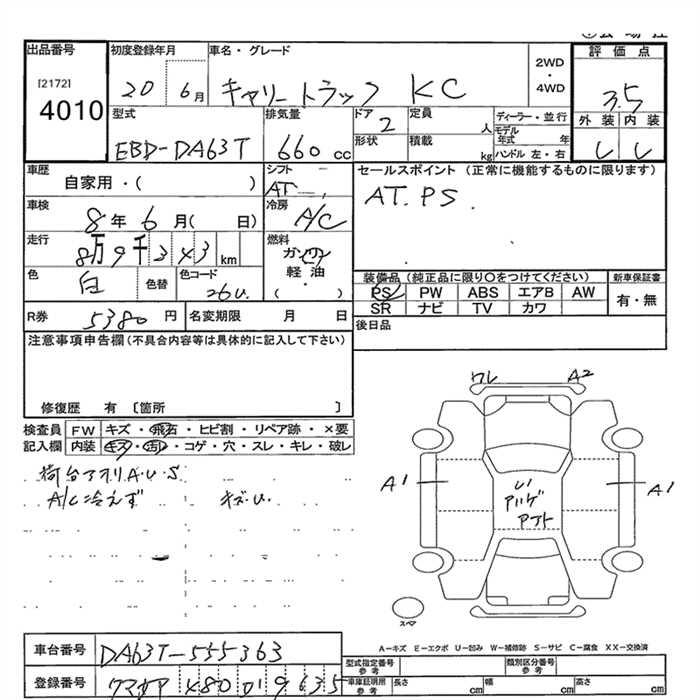 出品番号 初度登録年月 車名・グレード 2WD・4WD 評価点
[2172]
4010
20 6月 キャリートラック KC 3.5
型式 排気量 ドア 定員 人 ディーラー・並行 外装 内装
EBD-DA63T 660cc 2 形状 積載 kg モデル年式 年 ハンドル 左・右
車歴 自家用・( ) シフト AT セールスポイント (正常に機能するものに限ります)
車検 8年6月( 日) 冷房 A/C AT. PS.
走行 8万9千343km 燃料 ガソリン
軽油
・
( )
色 白 色替 色コード 26U. 装備品(純正品に限り○をつけてください) 新車保証書
PS PW ABS エアB AW 有・無
SR ナビ TV カワ
R券 5380円 名変期限 月 日 後日品
注意事項申告欄(不具合内容等は具体的に記入して下さい)
修復歴 有 〔箇所 〕
検査員 FW キズ・飛石・ヒビ割・リペア跡・×要
記入欄 内装 キズ・汚れ・コゲ・穴・スレ・キレ・破レ
荷台アオリA.U.S
A/C冷えず キズU.
ワレ A2
A1 A1
アト
スペア
A-キズ E-エクボ U-凹み W-補修跡 S-サビ C-腐食 XX-交換済
車台番号 DA63T-555363
型式指定番号 参考 類別区分番号 参考
登録番号 480 9635
車庫証明用 参考 長さ cm 幅 cm 高さ cm